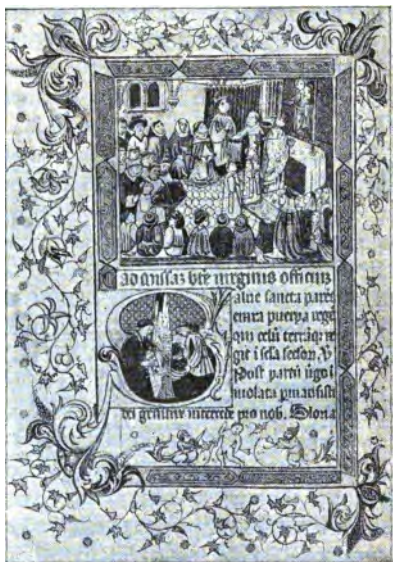 ad missaz bte virginis officiuz
Salue sancta pares
enixa puerpa regē
qui celū terrāqȝ re
git i scla seclor. V
Post partū v̄go i
uiolata pmāsisti
dei genitrix intercede pro nob. Gloria